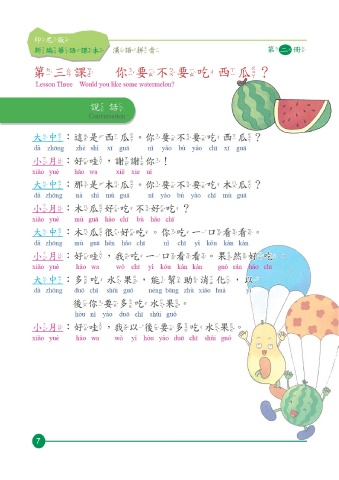 印尼版
新編華語課本 漢語拼音 第二冊
第三課 你要不要吃西瓜？
Lesson Three Would you like some watermelon?
說話
Conversation
大中：這是西瓜。你要不要吃西瓜？
dà zhōng zhè shì xī guā nǐ yào bú yào chī xī guā
小月：好哇，謝謝你！
xiǎo yuè hǎo wa xiè xie nǐ
大中：那是木瓜。你要不要吃木瓜？
dà zhōng nà shì mù guā nǐ yào bú yào chī mù guā
小月：木瓜好吃不好吃？
xiǎo yuè mù guā hǎo chī bù hǎo chī
大中：木瓜很好吃。你吃一口看看。
dà zhōng mù guā hěn hǎo chī nǐ chī yì kǒu kàn kàn
小月：好哇，我吃一口看看。果然好吃。
xiǎo yuè hǎo wa wǒ chī yì kǒu kàn kàn guǒ rán hǎo chī
大中：多吃水果，能幫助消化，以
dà zhōng duō chī shuǐ guǒ néng bāng zhù xiāo huà yǐ
後你要多吃水果。
hòu nǐ yào duō chī shuǐ guǒ
小月：好哇，我以後要多吃水果。
xiǎo yuè hǎo wa wǒ yǐ hòu yào duō chī shuǐ guǒ
7